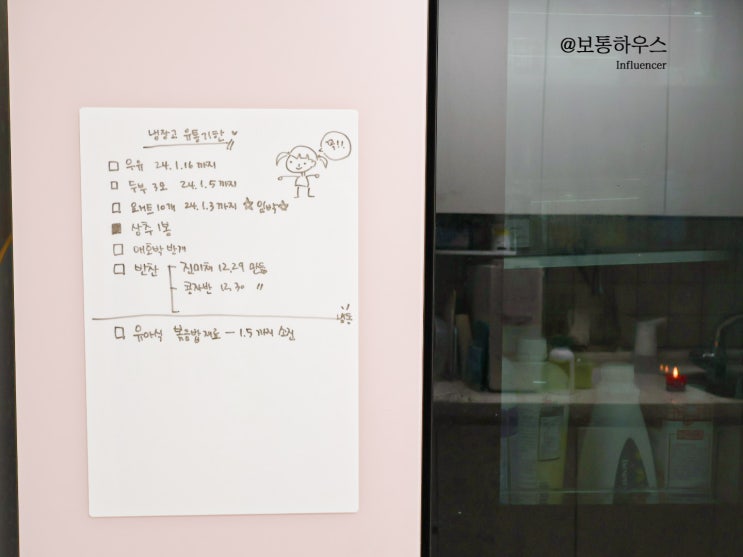 냉장고 유통기한
꼭!!
□ 우유 24.1.16 까지
□ 두부 3모 24.1.5 까지
□ 요거트 10개 24.1.3 까지 ☆임박☆
■ 상추 1봉
□ 애호박 반개
□ 반찬 진미채 12.29 만듦
콩자반 12.30 〃
냉동
□ 유아식 볶음밥 재료 – 1.5 까지 소진
@보통하우스
Influencer